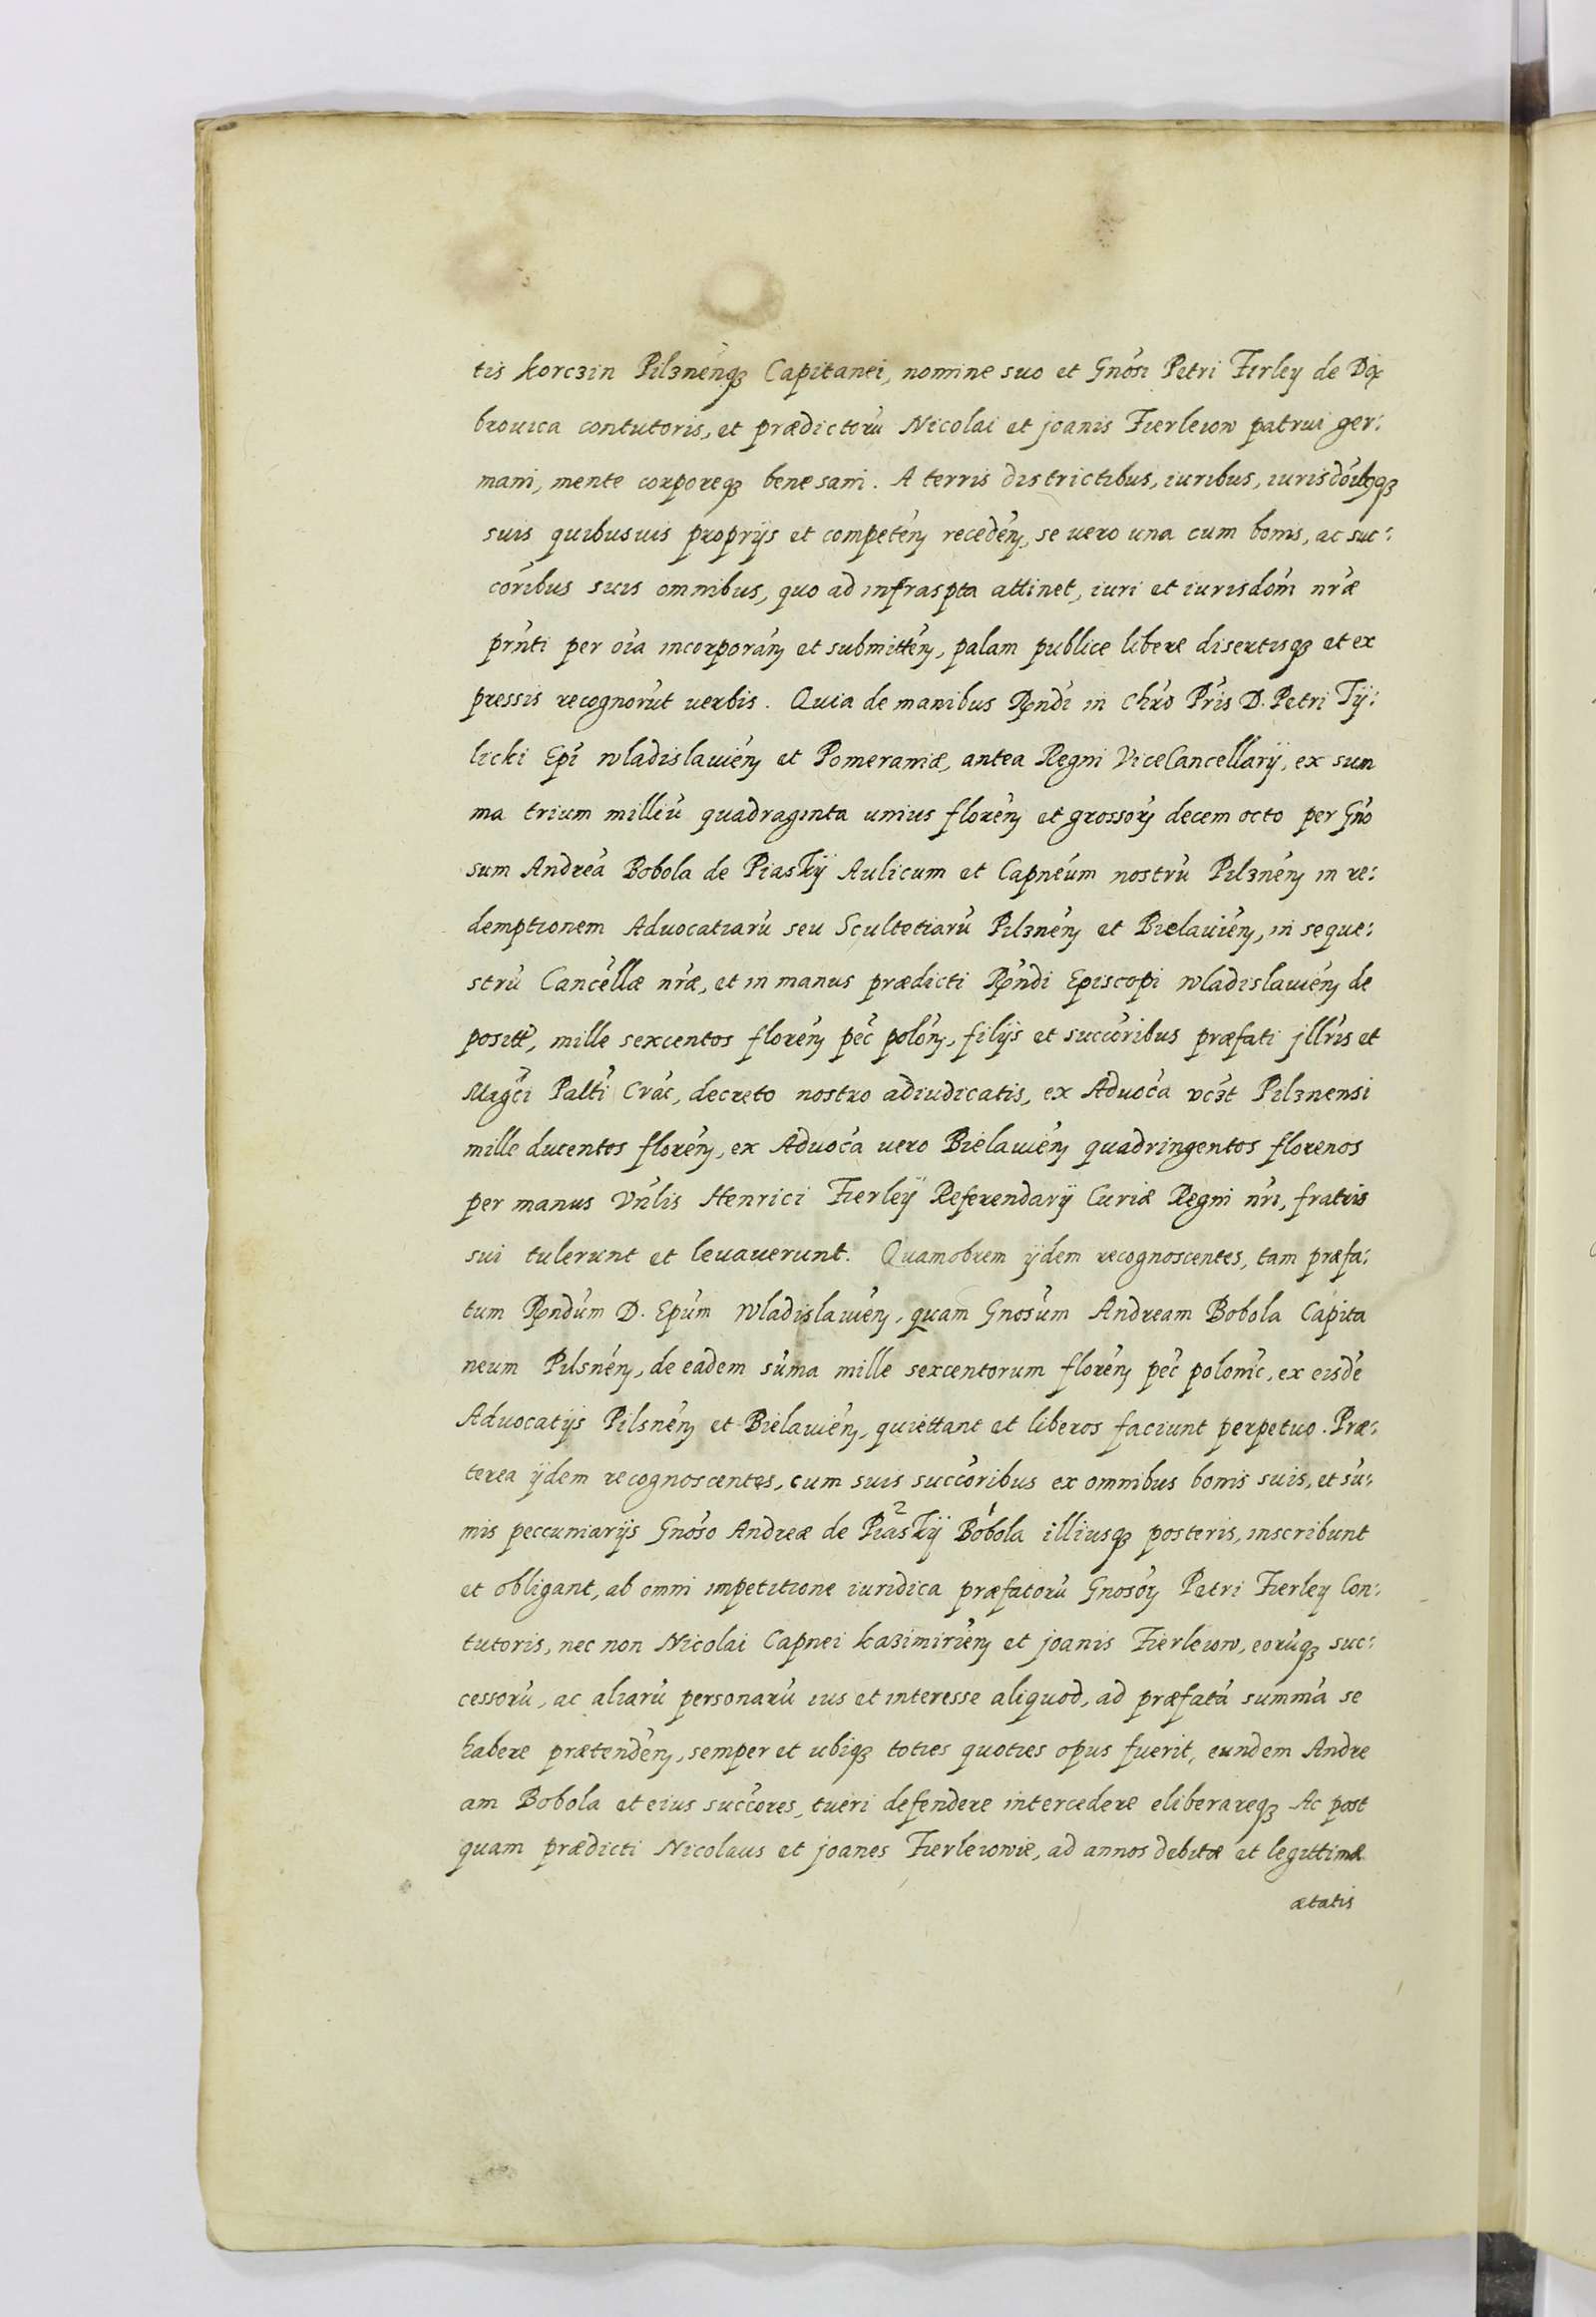 tis korczin Pilznenq́ꝫ Capitanei, nomine suo et Gnósi Petri Firley de Dą
browica contutoris, et prædictorú Nicolai et joanis Fierleiow patrui ger:
mani, mente corporeqꝫ bene sani. A terris districtibus, iuribus, iurisdóibqꝫ
suis quibusuis proprijs et competéń recedéń, se uero una cum bonis, ac suc:
córibus suis omnibus, quo ad infraspta attinet, iuri et iurisdóni nŕæ
prńti per oía incorporáń et submittéń, palam publice libere disertisqꝫ et ex
pressis recognorút uerbis. Quia de manibus Rṇdí in Chŕo Pŕis D. Petri Tÿ:
licki Epí wladislauiéń et Pomeraniæ, antea Regni ViceCancellarÿ, ex sum
ma trium milliú quadraginta unius floréń et grossorꝫ decem octo per Gńo
sum Andreá Bobola de Piaskÿ Aulicum et Capnéum nostrú Pilznéń in re:
demptionem Aduocatiarú seu Scultetiarú Pilznéń et Bielauiéń, in seque:
strú Cancéllæ nŕæ, et in manus prædicti Rṇdi Episcopi wladislauiéń de
positt, mille sexcentos floréń péc polóń, filijs et succóribus præfati jllŕis et
Mágci Paltí Crác, decreto nostro adiudicatis, ex Aduocá vczt Pilznensi
mille ducentos floréń, ex Aduocá uero Bielauiéń quadringentos florenos
per manus Vńlis Henrici Fierleÿ Referendarÿ Curiæ Regni nŕi, fratris
sui tulerunt et leuauerunt. Quamobrem ÿdem recognoscentes, tam præfa:
tum Rṇdúm D. Epúm Wladislauiéń, quam Gnosúm Andream Bobola Capita
neum Pilsnéń, de eadem súma mille sexcentorum floréń péc poloníc, ex eisdé
Aduocatÿs Pilsnéń et Bielauiéń, quiettant et liberos faciunt perpetuo. Præ:
terea ÿdem recognoscentes, cum suis succóribus ex omnibus bonis suis, et sú:
mis peccuniarÿs Gnóso Andreæ de ²Piaskÿ ¹Bobola illiusqꝫ posteris, inscribunt
et obligant, ab omni impetitione iuridica præfatorú Gnosórꝫ Petri Fierley Con:
tutoris, nec non Nicolai Capnei kazimiriéń et joanis Fierleiow, eorúqꝫ suc:
cessorú, ac aliarú personarú ius et interesse aliquod, ad præfatá summá se
habere prætendéń, semper et ubiqꝫ toties quoties opus fuerit, eundem Andre
am Bobola et eius succóres, tueri defendere intercedere eliberareqꝫ Ac post
quam prædicti Nicolaus et joanes Fierleiowie, ad annos debitæ et legittimæ
ætatis